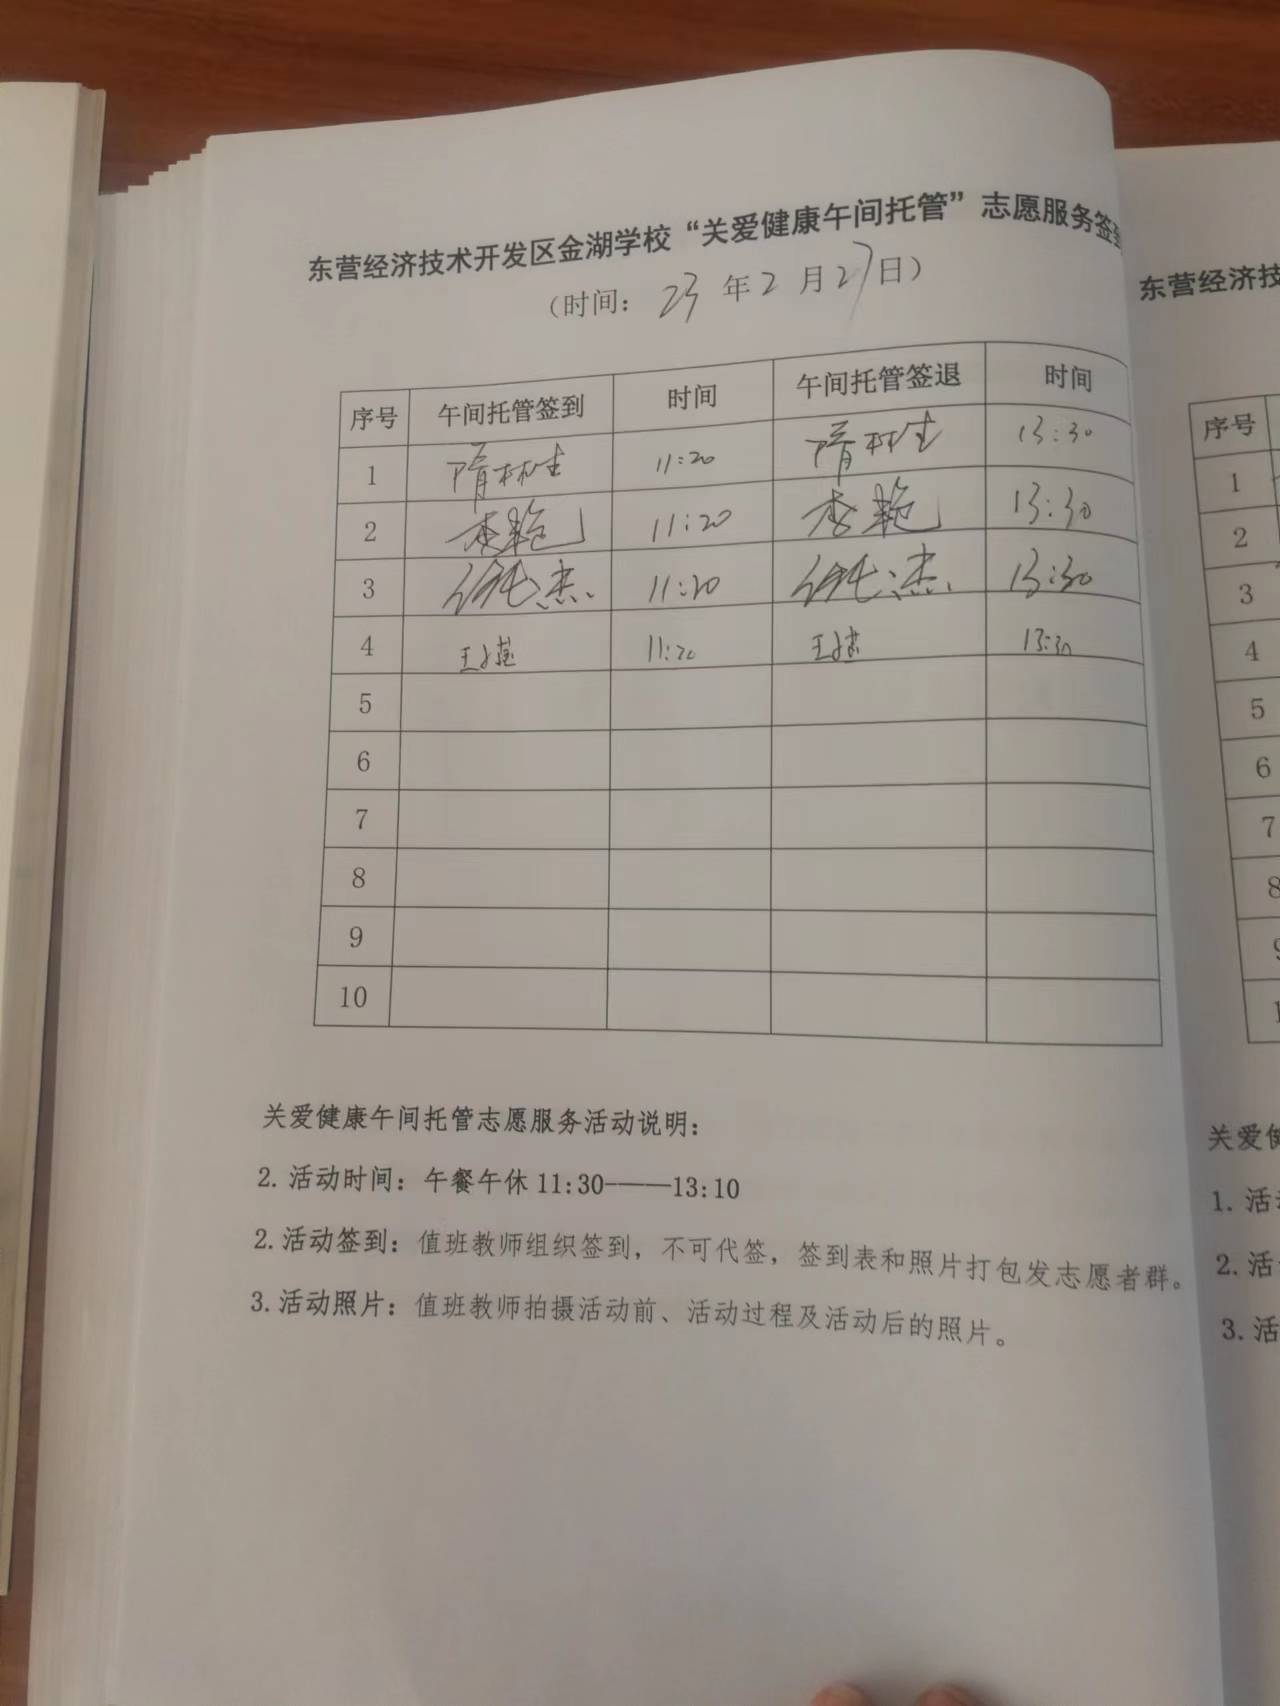 东营经济技术开发区金湖学校“关爱健康午间托管”志愿服务签到
（时间：23年2月27日）
序号 午间托管签到 时间 午间托管签退 时间
1 隋林生 11:20 隋林生 13:30
2 李艳 11:20 李艳 13:30
3 11:20 13:30
4 11:20 13:30
5
6
7
8
9
10
关爱健康午间托管志愿服务活动说明：
2. 活动时间：午餐午休 11:30———13:10
2. 活动签到：值班教师组织签到，不可代签，签到表和照片打包发志愿者群。
3. 活动照片：值班教师拍摄活动前、活动过程及活动后的照片。
东营经济技
序号
1
2
3
4
5
6
7
8
关爱健
1. 活
2. 活
3. 活